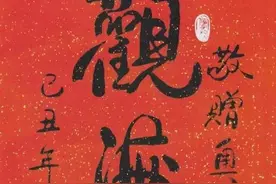 敬贈
觀海
己丑年